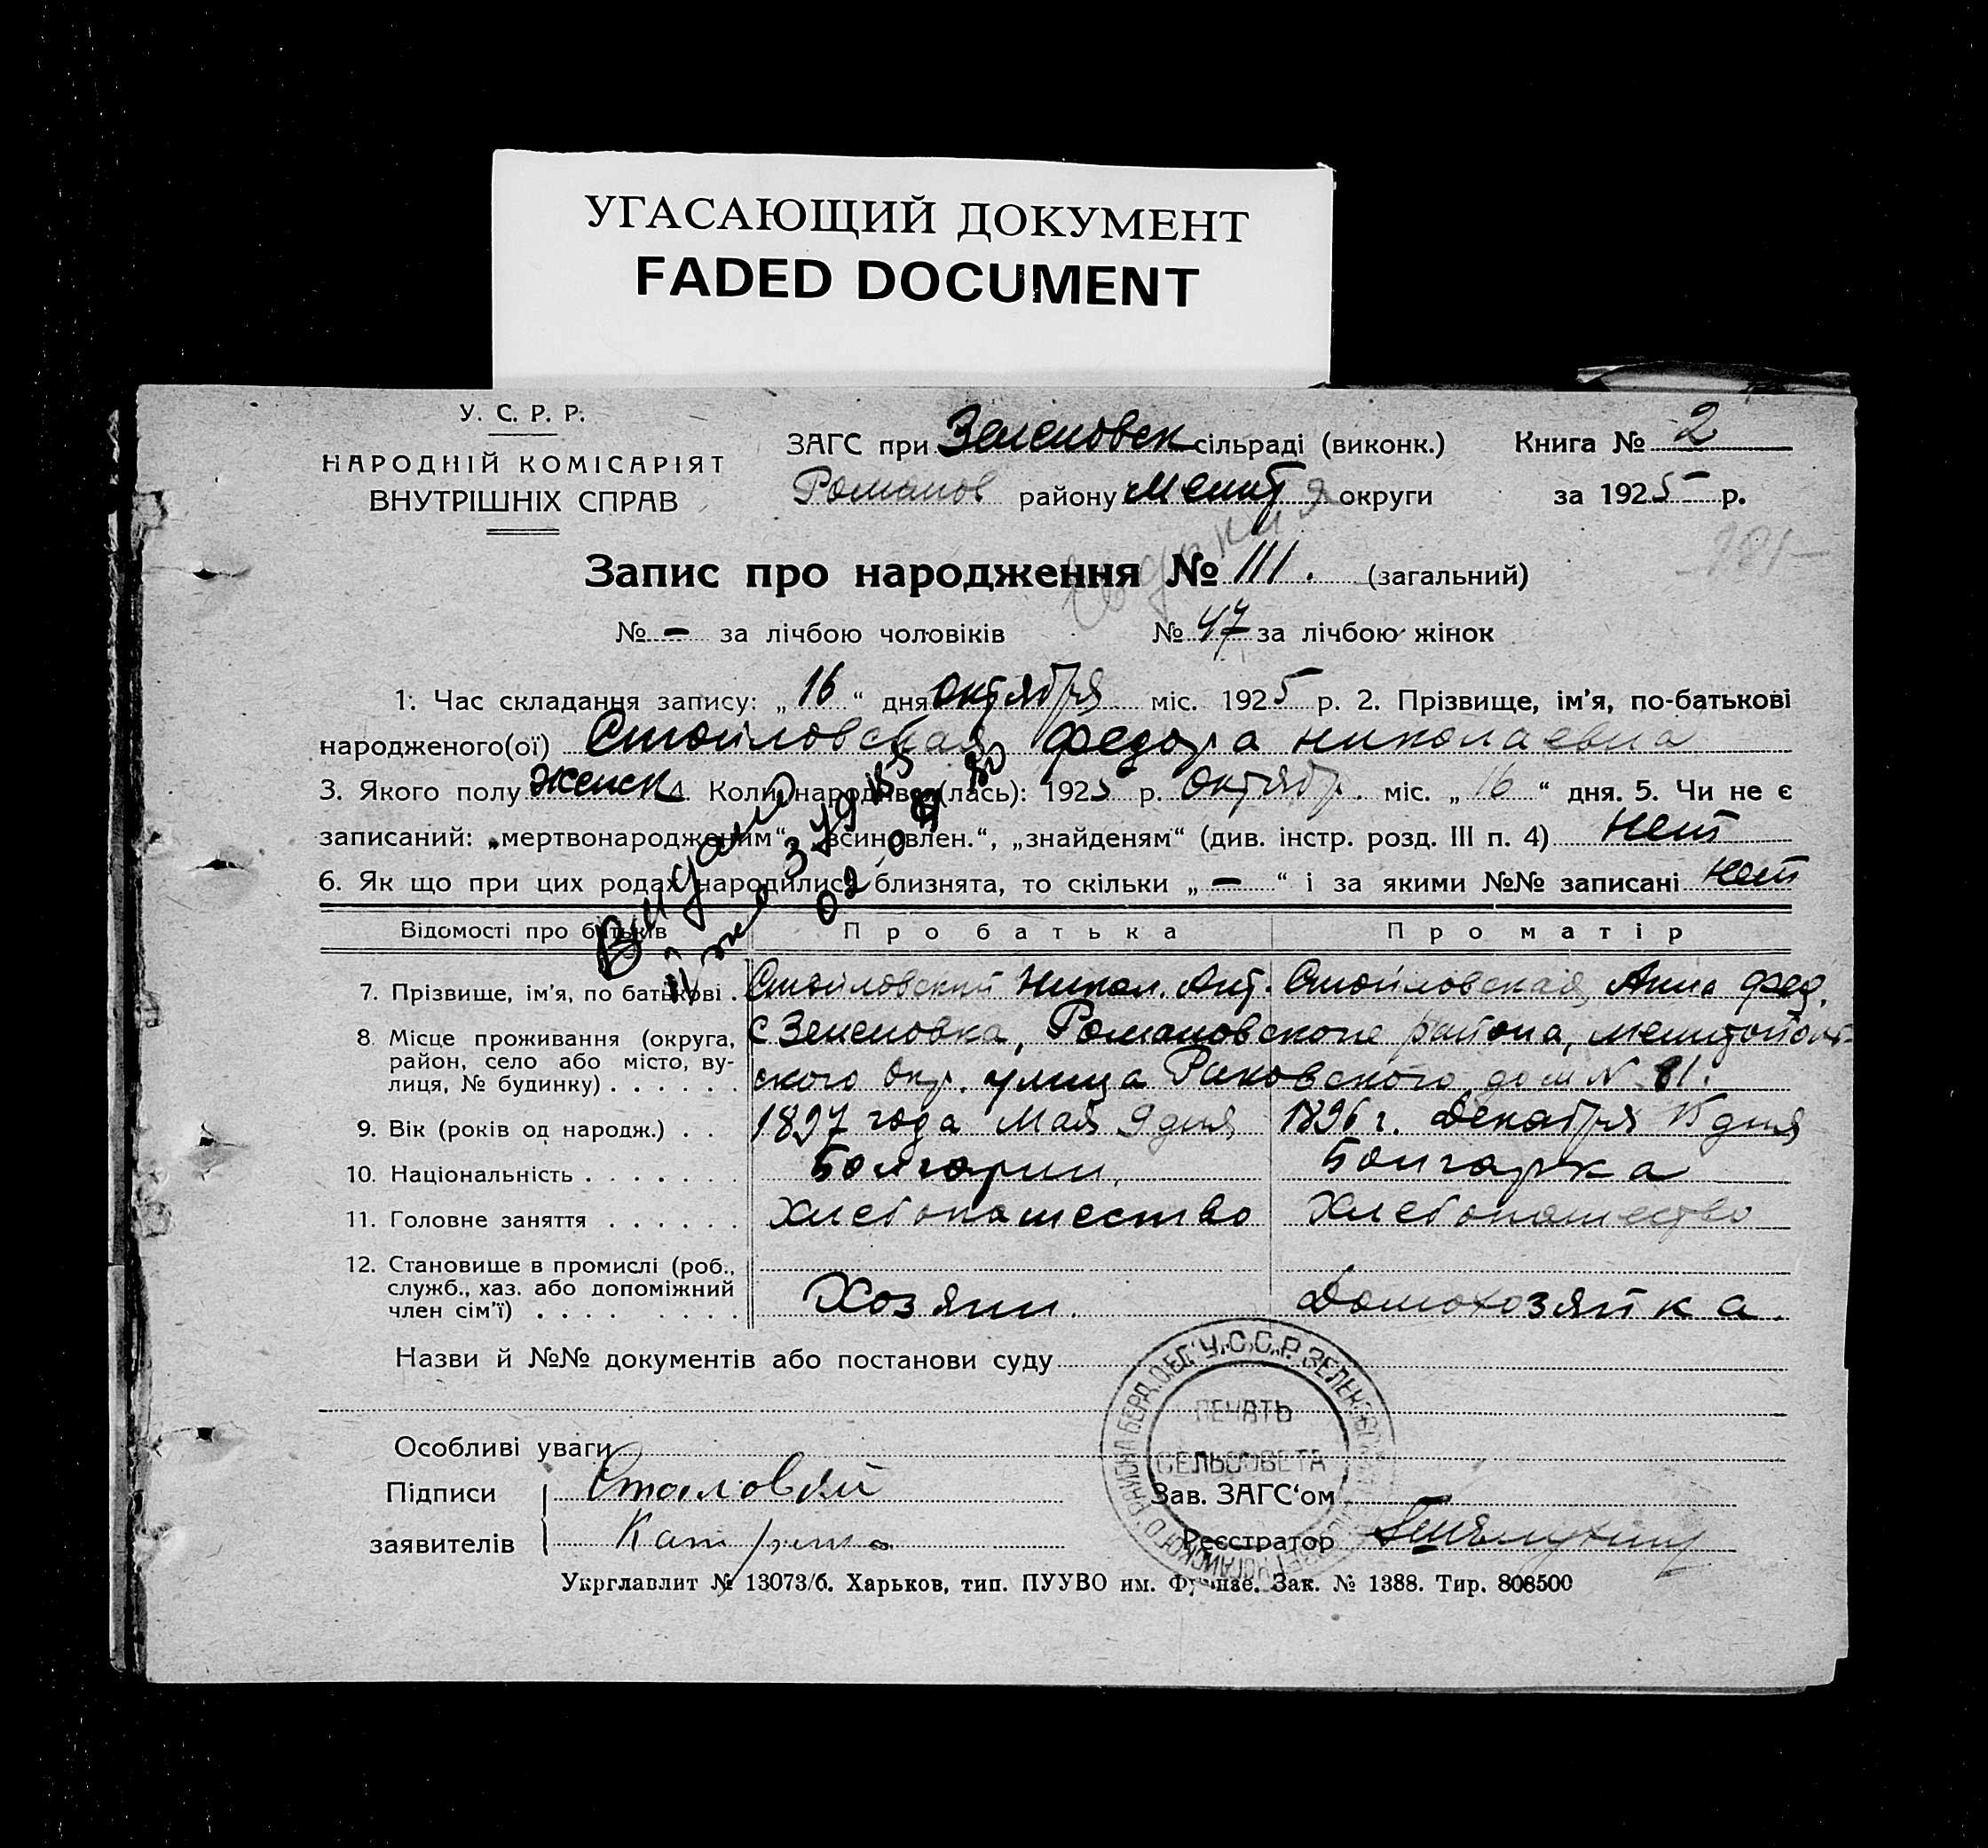 УГАСАЮЩИЙ ДОКУМЕНТ
FADED DOCUMENT
У. С. Р. Р.
НАРОДНІЙ КОМІСАРІЯТ
ВНУТРІШНІХ СПРАВ
ЗАГС при Зеленовск сільраді (виконк.)
Романов району Мелит округи
Книга № 2
за 1925 р.
Запис про народження № 111. (загальний)
181
№ – за лічбою чоловіків № 47 за лічбою жінок
1. Час складання запису: „16“ дня октября міс. 1925 р. 2. Прізвище, ім’я, по-батькові
народженого(ої) Стойловская Федора Николаевна
3. Якого полу женск 4. Коли народився (лась): 1925 р. Октябр. міс. „16“ дня. 5. Чи не є
записаний: „мертвонародженим“, „всиновлен.“, „знайденям“ (див. інстр. розд. III п. 4) Нет
6. Як що при цих родах народилися близнята, то скільки „–“ і за якими №№ записані Нет
Відомості про батьків Про батька Про матір
7. Прізвище, ім’я, по батькові . Стойловский Никол. Ант. Стойловская Анна Фед.
8. Місце проживання (округа, район, село або місто, вулиця, № будинку) . . . . . .
с Зеленовка, Романовского района, Мелитополь-
ского Окр. улица Раковского дом № 81.
9. Вік (років од народж.) . . 1897 года Мая 9 дня 1896 г. Декабря 15 дня
10. Національність . . . . . . . Болгарин, Болгарка
11. Головне заняття . . . . . . Хлебопашество Хлебопашество
12. Становище в промислі (роб.,
служб., хаз. або допоміжний
член сім’ї) . . . . . . . . Хозяин. Домохозяйка.
Назви й №№ документів або постанови суду
Особливі уваги
Підписи Стаіловский
заявителів Катрина
Зав. ЗАГС‘ом
Реєстратор
У.С.С.Р. ЗЕЛЕНОВС
ПЕЧАТЬ
СЕЛЬСОВЕТА
Укрглавлит № 13073/б. Харьков, тип. ПУУВО им. Фрунзе. Зак. № 1388. Тир. 808500